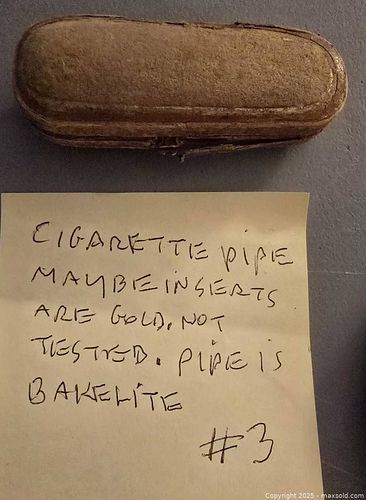 CIGARETTE PIPE
MAYBE INSERTS
ARE GOLD. NOT
TESTED. PIPE IS
BAKELITE
#3
Copyright 2025 - maxsold.com